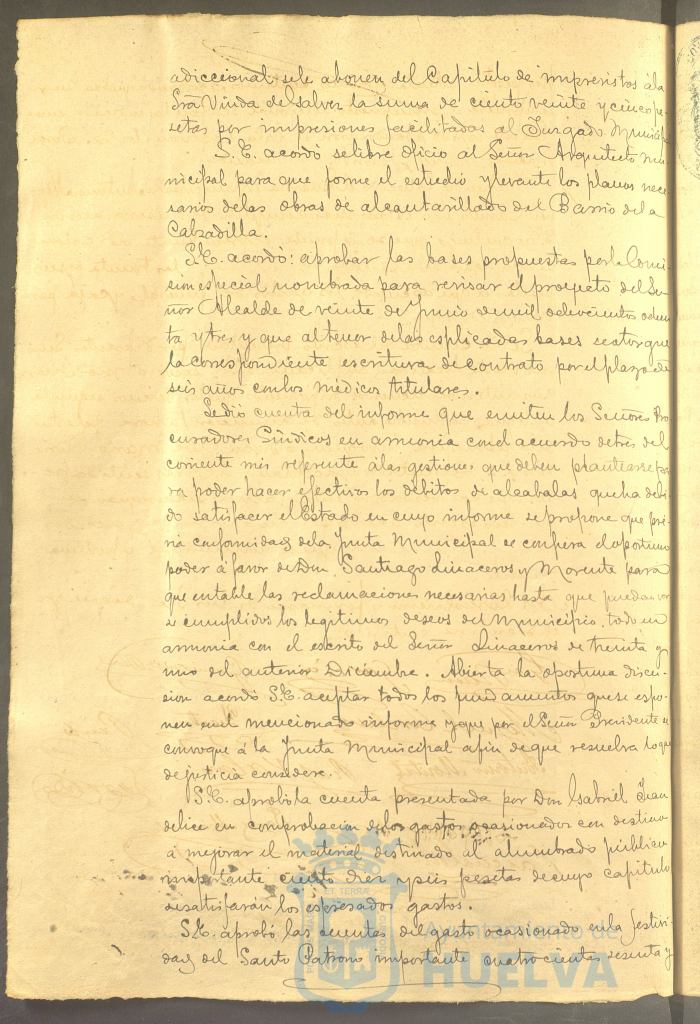 adiccional se le abonen del Capitulo de imprevistos á la
Srã Viuda de Salvez la suma de ciento veinte y cinco pe-
setas por impresiones facilitadas al Juzgado Municipal
S.E. acordó se libre oficio al Señor Arquitecto mu-
nicipal para que forme el estudio y levante los planos nece-
sarios de las obras de alcantarillado del Barrio de la
Calzadilla.
S.E. acordó: aprobar las bases propuestas por la Comi-
sion especial nombrada para revisar el proyecto del Se-
ñor Alcalde de veinte de Junio de mil ochocientos ochen-
ta y tres y que al tenor de las esplicadas bases se otorgue
la correspondiente escritura de contrato por el plazo de
seis años con los médicos titulares.
Se dió cuenta del informe que emiten los Señores Pro-
curadores Síndicos en armonia con el acuerdo de tres del
corriente mes referente á las gestiones que deben plantearse pa-
ra poder hacer efectivos los débitos de alcabalas que ha debi-
do satisfacer el Estado en cuyo informe se propone que pré-
via conformidad de la Junta Municipal se confiera el oportuno
poder á favor de Don Santiago Linaceros y Morente para
que entable las reclamaciones necesarias hasta que puedan ver
se cumplidos los legitimos deseos del Municipio, todo en
armonia con el escrito del Señor Linaceros de treinta y
uno del anterior Diciembre. Abierta la oportuna discu-
sion acordó S.E. aceptar todos los fundamentos que se espo-
nen en el mencionado informe y que por el Señor Presidente se
convoque á la Junta Municipal afin de que resuelva lo que
de justicia considere.
S.E. aprobó la cuenta presentada por Don Gabriel Juan
delice en comprobacion de los gastos ocasionados con destino
a mejorar el material destinado al alumbrado público
importante ciento diez y seis pesetas de cuyo capitulo
se satisfarán los espresados gastos.
S.E. aprobó las cuentas del gasto ocasionado en la festivi-
dad del Santo Patrono importante cuatrocientas sesenta y
Ayuntamiento de
HUELVA